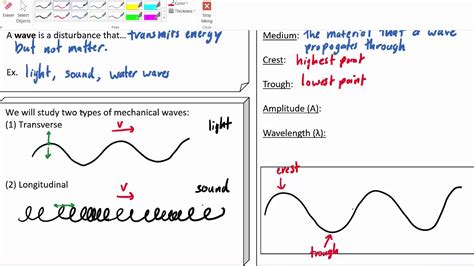 Eraser
Select
Objects
Color
Thickness
Stop
Inking
A wave is a disturbance that... transmits energy
but not matter.
Ex. light, sound, water waves
We will study two types of mechanical waves:
(1) Transverse
V
light
(2) Longitudinal
V
sound
Medium: the material that a wave
propagates through
Crest: highest point
Trough: lowest point
Amplitude (A):
Wavelength (λ):
crest
trough